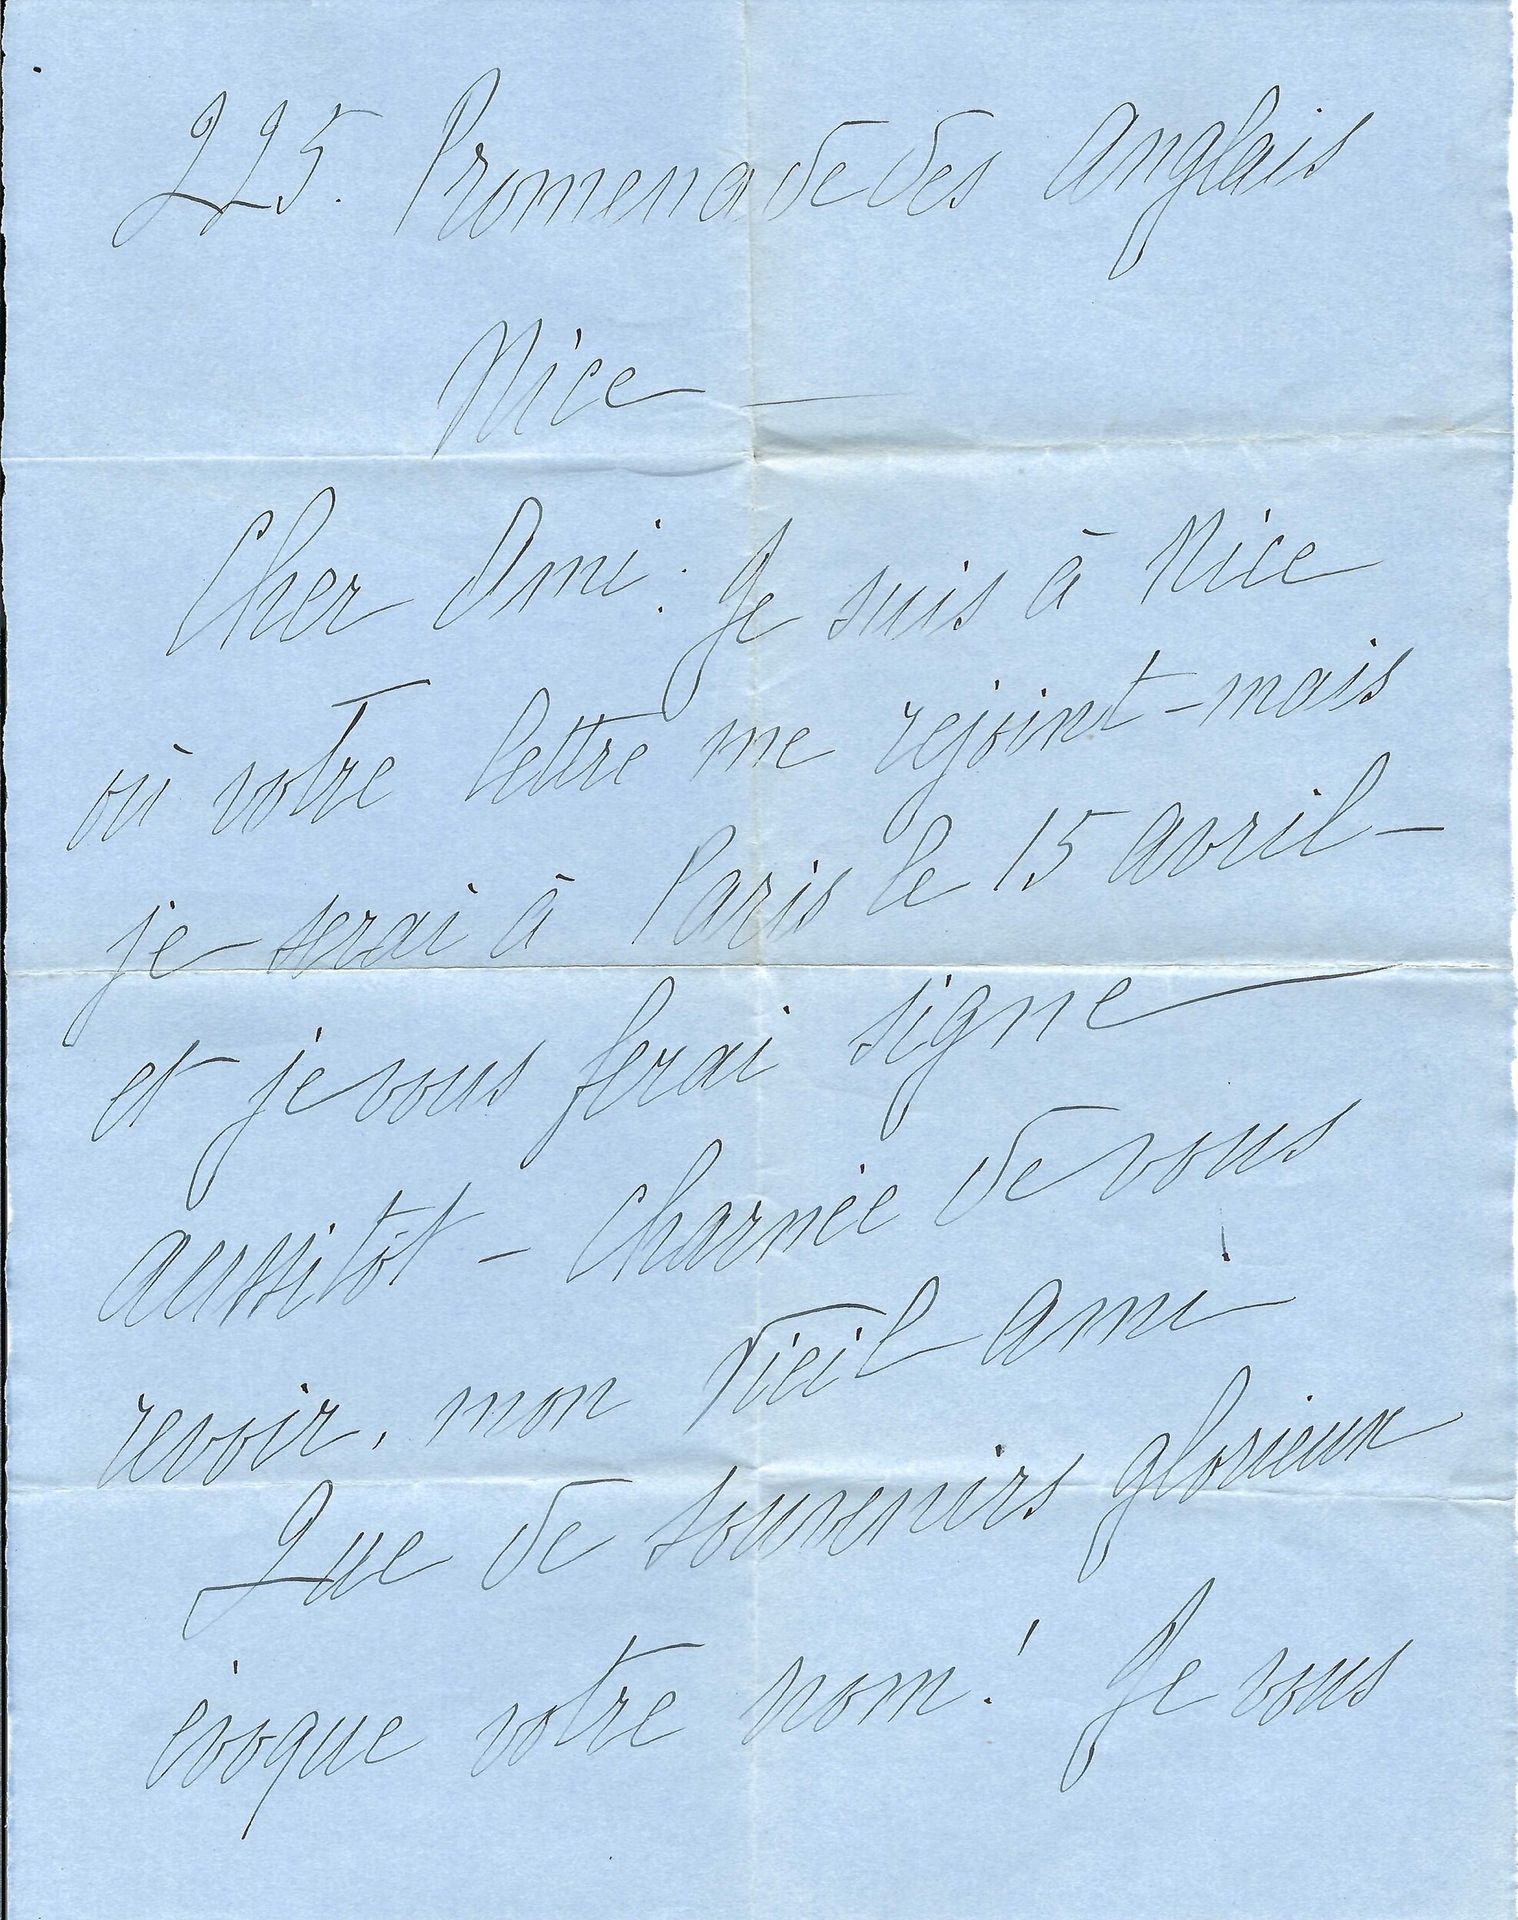 225. Promenade des Anglais
Nice —
Cher Ami. Je suis à Nice
où votre lettre me rejoint - mais
je serai à Paris le 15 avril -
et je vous ferai signe
aussitôt - Charmée de vous
revoir, mon vieil ami
Que de souvenirs glorieux
évoque votre nom! Je vous